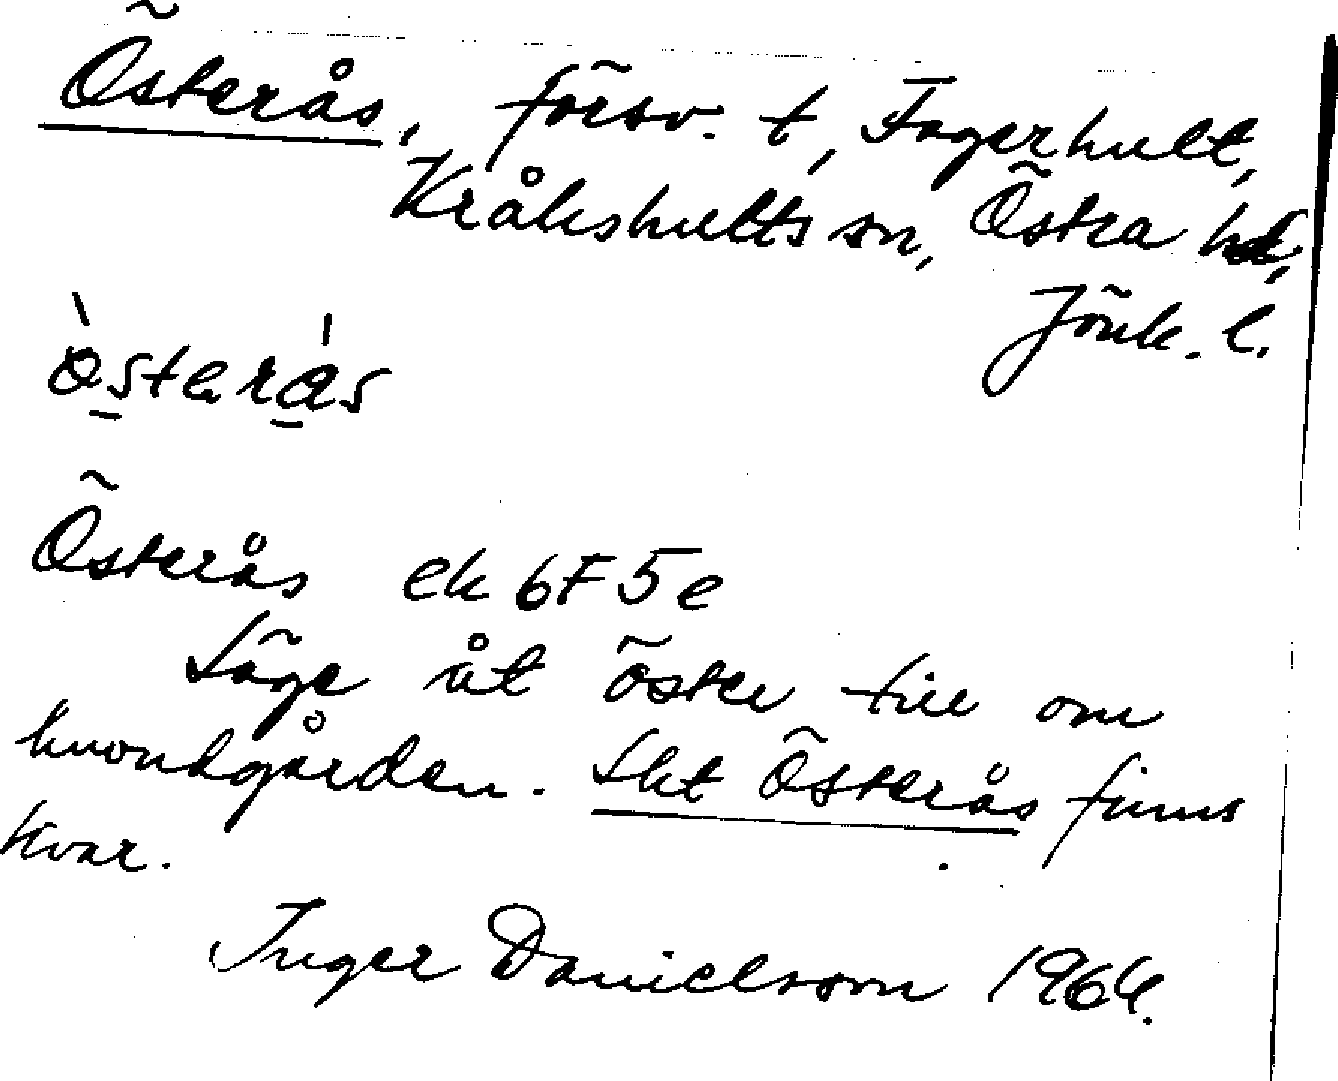 Österås, försv. t, Fagerhult,
Kråkshults sn, Östra hd,
Jönk. l.
òsterás
Österås ek 6F5e
Läge åt öster till om
huvudgården. Skt Österås finns
kvar.
Inger Danielsson 1964.